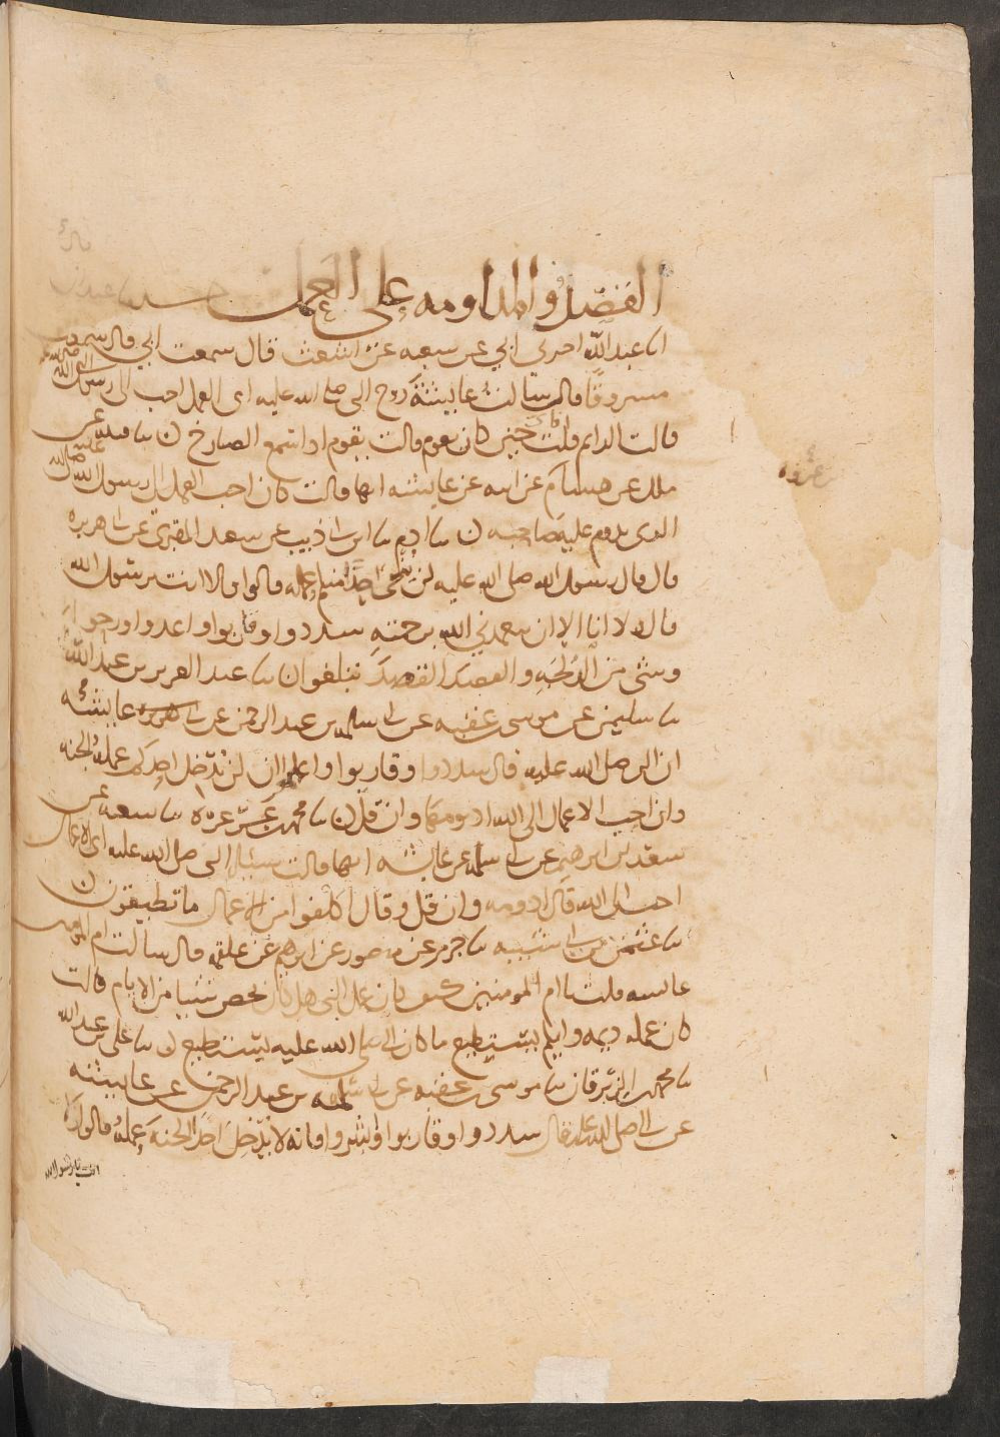 القصد والمداومه على العمل
انا عبد الله احرنى ابي عن سعبه عن اشعث قال سمعت ابي قال سمعت
مسروقا قال سالت عايشة زوج النبى صلى الله عليه اى العمل احب الى رسول الله
قالت الدايم قلت حين كان يقوم قالت يقوم اذا سمع الصارخ ن سا قتيبه عن
ملك عن هشام عن ابيه عن عايشه انها قالت كان احب العمل الى رسول الله
الذى يدوم عليه صاحبه ن سا ادم سا ابن ابى ذيب عن سعيد المقبرى عن ابى هريره
قال قال رسول الله صلى الله عليه لن ينجى احدا منكم عمله قالوا ولا انت يرسول الله
قال ولا انا الا ان يتغمدني الله برحمته سددوا وقاربوا واغدوا وروحوا
وشى من الدلجه والقصد القصد تبلغوا ن سا عبد العزيز بن عبد الله
سا سليمن عن موسى بن عقبه عن ابى سلمه بن عبد الرحمن عن عايشه
ان النبى صلى الله عليه قال سددوا وقاربوا واعلموا ان لن يدخل احدكم عمله الجنه
وان احب الاعمال الى الله ادومها وان قل ن سا محمد بن عرعره سا سعبه عن
سعد بن ابرهيم عن ابى سلمه عن عايشه انها قالت سيل النبى صلى الله عليه اى الاعمال
احب الى الله قال ادومه وان قل وقال اكلفوا من الاعمال ما تطيقون ن
سا عثمن بن ابى شيبه سا جرير عن منصور عن ابرهيم عن علقمه قال سالت ام المومنين
عايسه قلت يا ام المومنين كيف كان عمل النبى هل كان يخص شيا من الايام قالت
كان عمله ديمه وايكم يستطيع ما كان النبى صلى الله عليه يستطيع ن سا على بن عبد الله
سا محمد بن الزبرقان سا موسى بن عقبه عن ابى سلمه بن عبد الرحمن عن عايشه
عن النبى صلى الله عليه قال سددوا وقاربوا وابشروا فانه لا يدخل احدا الجنه عمله قالوا ولا
انت يا رسول الله